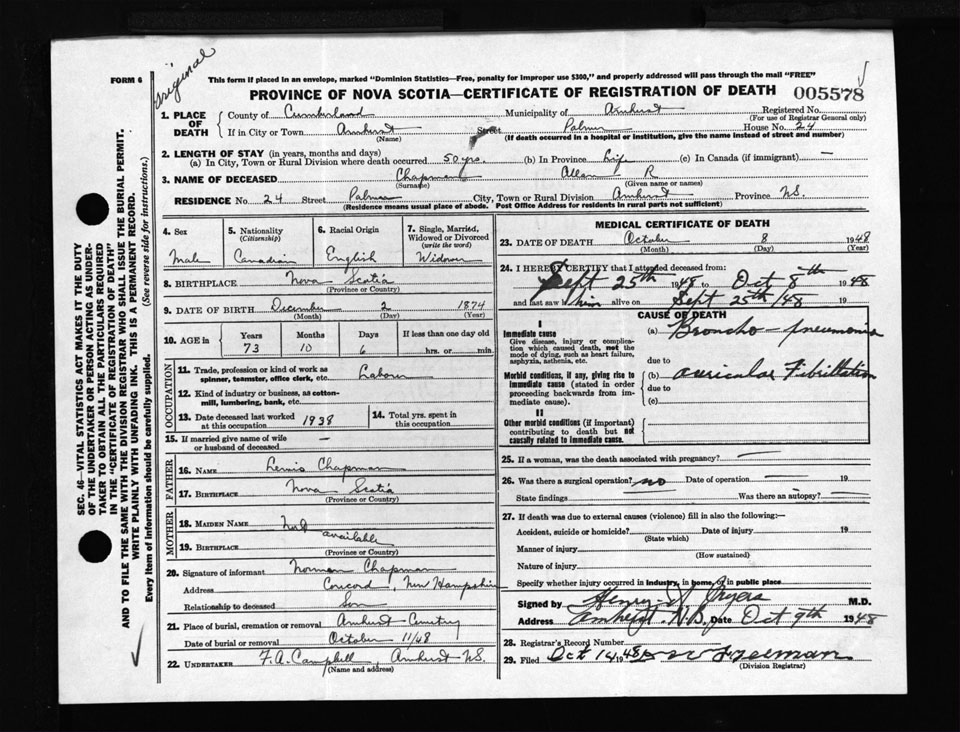 original
FORM 6
This form if placed in an envelope, marked "Dominion Statistics—Free, penalty for improper use $300," and properly addressed will pass through the mail "FREE"
PROVINCE OF NOVA SCOTIA—CERTIFICATE OF REGISTRATION OF DEATH 005578
SEC. 46—VITAL STATISTICS ACT MAKES IT THE DUTY
OF THE UNDERTAKER OR PERSON ACTING AS UNDER-
TAKER TO OBTAIN ALL THE PARTICULARS REQUIRED
IN THE "CERTIFICATE OF REGISTRATION OF DEATH"
AND TO FILE THE SAME WITH THE DIVISION REGISTRAR WHO SHALL ISSUE THE BURIAL PERMIT.
WRITE PLAINLY WITH UNFADING INK. THIS IS A PERMANENT RECORD.
Every item of Information should be carefully supplied. (See reverse side for instructions.)
1. PLACE OF DEATH
County of Cumberland Municipality of Amherst Registered No.
(For use of Registrar General only)
If in City or Town Amherst Street Palmer House No. 24
(Name) (If death occurred in a hospital or institution, give the name instead of street and number)
2. LENGTH OF STAY (in years, months and days)
(a) In City, Town or Rural Division where death occurred 50 yrs. (b) In Province Life (c) In Canada (if immigrant) —
3. NAME OF DECEASED Chapman Allan R
(Surname) (Given name or names)
RESIDENCE No. 24 Street Palmer City, Town or Rural Division Amherst Province N.S.
(Residence means usual place of abode. Post Office Address for residents in rural parts not sufficient)
4. Sex Male
5. Nationality (Citizenship) Canadian
6. Racial Origin English
7. Single, Married, Widowed or Divorced (write the word) Widower
8. BIRTHPLACE Nova Scotia
(Province or Country)
9. DATE OF BIRTH December 2 1874
(Month) (Day) (Year)
10. AGE in Years Months Days If less than one day old
73 10 6 hrs. or min.
OCCUPATION
11. Trade, profession or kind of work as spinner, teamster, office clerk, etc. Laborer
12. Kind of industry or business, as cotton-mill, lumbering, bank, etc.
13. Date deceased last worked at this occupation 1938
14. Total yrs. spent in this occupation
15. If married give name of wife or husband of deceased —
FATHER
16. NAME Lewis Chapman
17. BIRTHPLACE Nova Scotia
(Province or Country)
MOTHER
18. MAIDEN NAME Not
available
19. BIRTHPLACE
(Province or Country)
20. Signature of informant Norman Chapman
Address Concord, New Hampshire
Relationship to deceased Son
21. Place of burial, cremation or removal Amherst Cemetery
Date of burial or removal October 11/48
22. UNDERTAKER F. A. Campbell, Amherst N.S.
(Name and address)
MEDICAL CERTIFICATE OF DEATH
23. DATE OF DEATH October 8 1948
(Month) (Day) (Year)
24. I HEREBY CERTIFY that I attended deceased from:
Sept 25th 1948 to Oct 8th 1948
and last saw him alive on Sept 25th/48 19
CAUSE OF DEATH
I
Immediate cause
Give disease, injury or complication which caused death, not the mode of dying, such as heart failure, asphyxia, asthenia, etc.
(a) Broncho-pneumonia
due to
Morbid conditions, if any, giving rise to immediate cause (stated in order proceeding backwards from immediate cause).
(b) auricular Fibrillation
due to
(c)
II
Other morbid conditions (if important) contributing to death but not causally related to immediate cause.
25. If a woman, was the death associated with pregnancy? —
26. Was there a surgical operation? no Date of operation — 19
State findings — Was there an autopsy? —
27. If death was due to external causes (violence) fill in also the following:—
Accident, suicide or homicide? Date of injury 19
(State which)
Manner of injury
(How sustained)
Nature of injury
Specify whether injury occurred in industry, in home, or in public place
Signed by Henry M.D.
Address Amherst, N.S. Date Oct 9th 1948
28. Registrar's Record Number
29. Filed Oct 14 1948 Freeman
(Division Registrar)